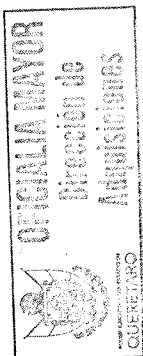 OFICIALIA MAYOR
Dirección de
Adquisiciones
PODER EJECUTIVO DEL ESTADO DE
QUERETARO